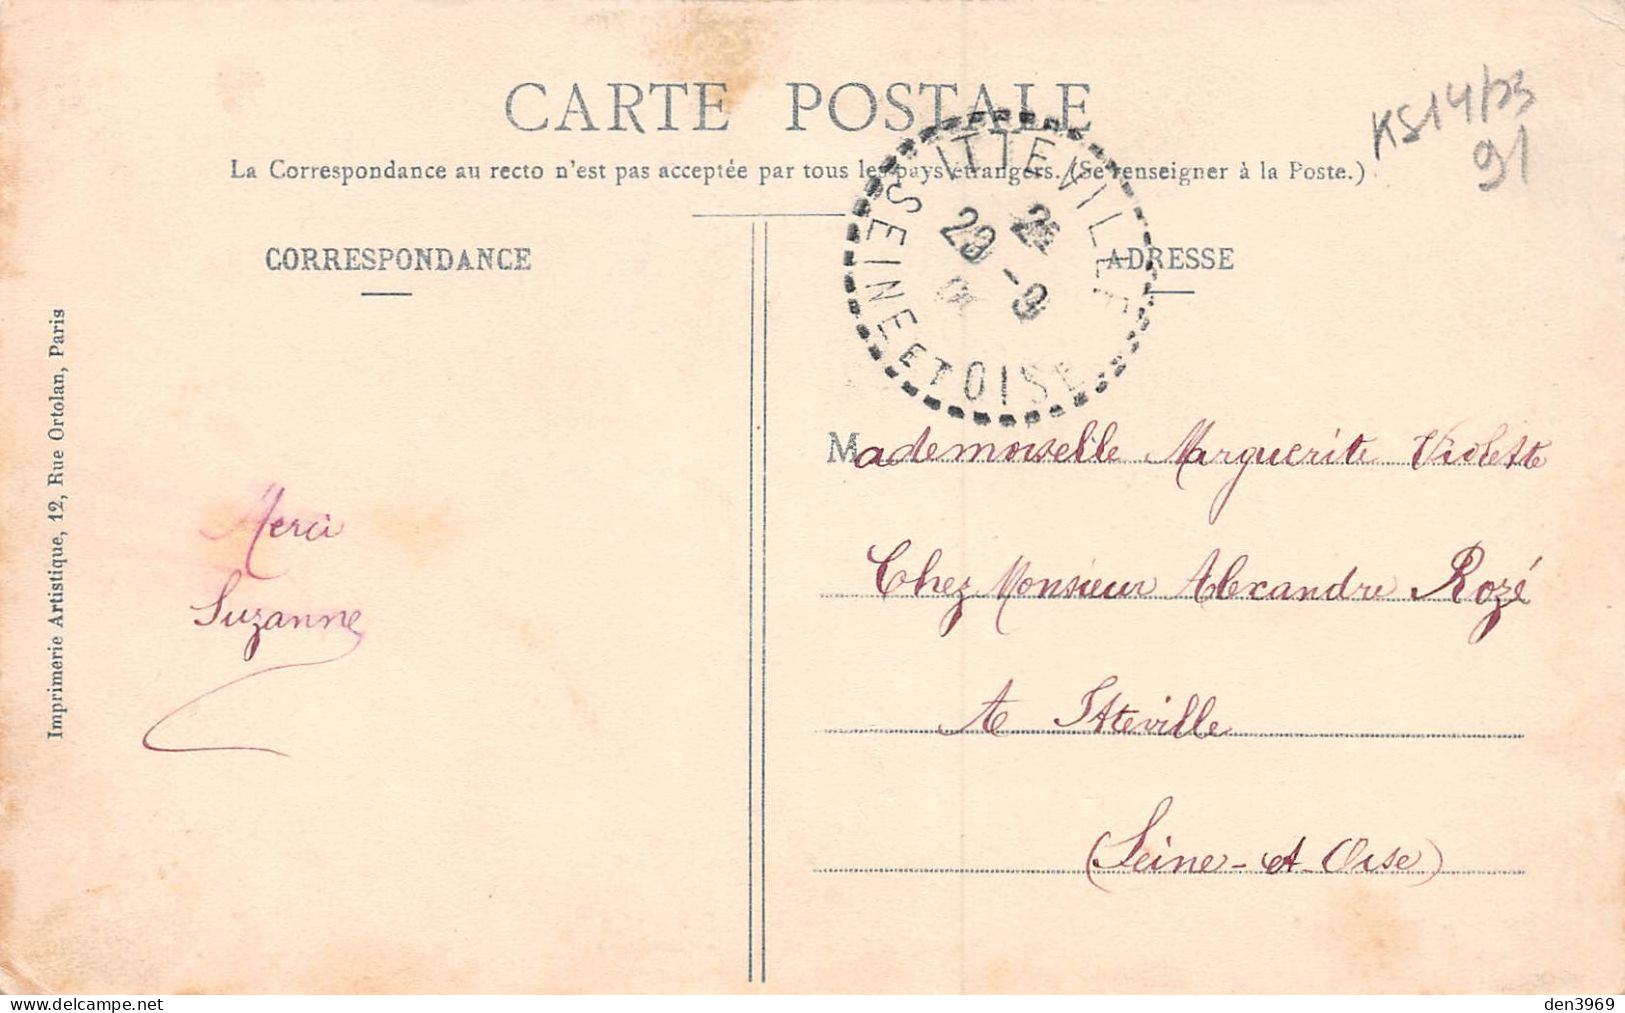 CARTE POSTALE
La Correspondance au recto n'est pas acceptée par tous les pays étrangers. (Se renseigner à la Poste.)
KS14/
91
ITTEVILLE
SEINE ET OISE
CORRESPONDANCE
ADRESSE
Imprimerie Artistique, 12, Rue Ortolan, Paris
Merci
Suzanne
Mademoiselle Marguerite Violette
Chez Monsieur Alexandre Rozé
A Itteville
(Seine-et-Oise)
den3969